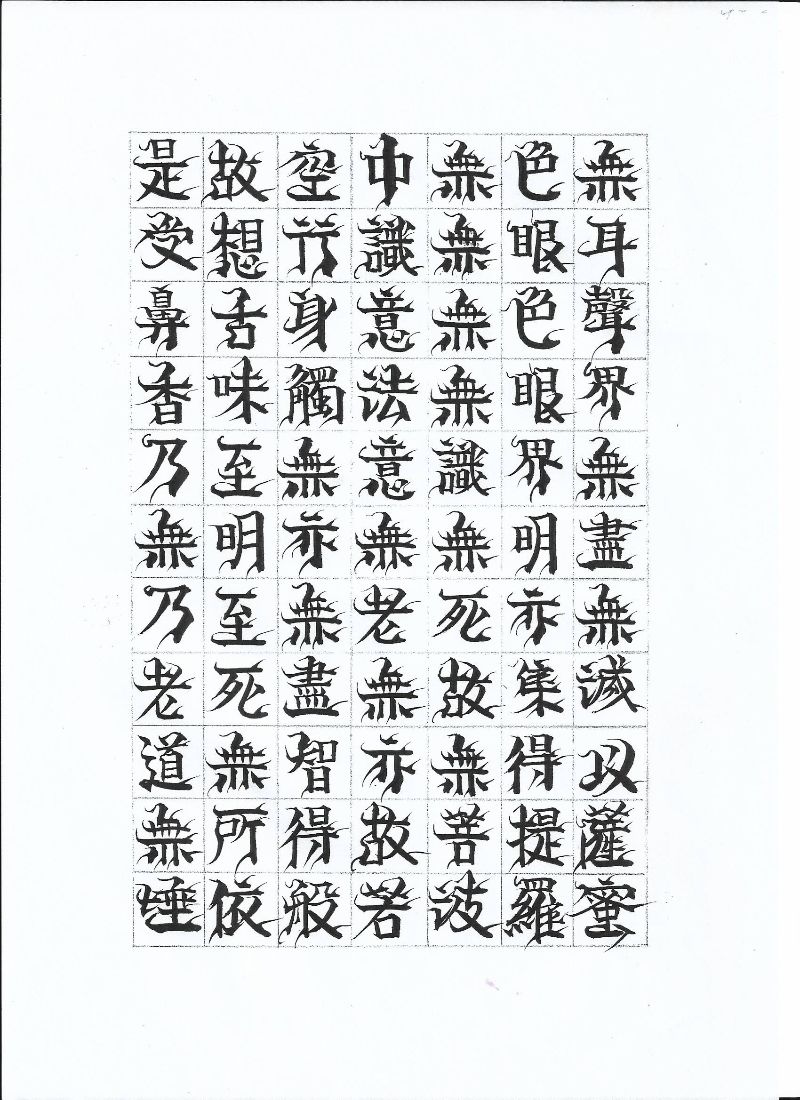 是故空中無色無
受想行識無眼耳
鼻舌身意無色聲
香味觸法無眼界
乃至無意識界無
無明亦無無明盡
乃至無老死亦無
老死盡無故集滅
道無智亦無得以
無所得故菩提薩
埵依般若波羅蜜